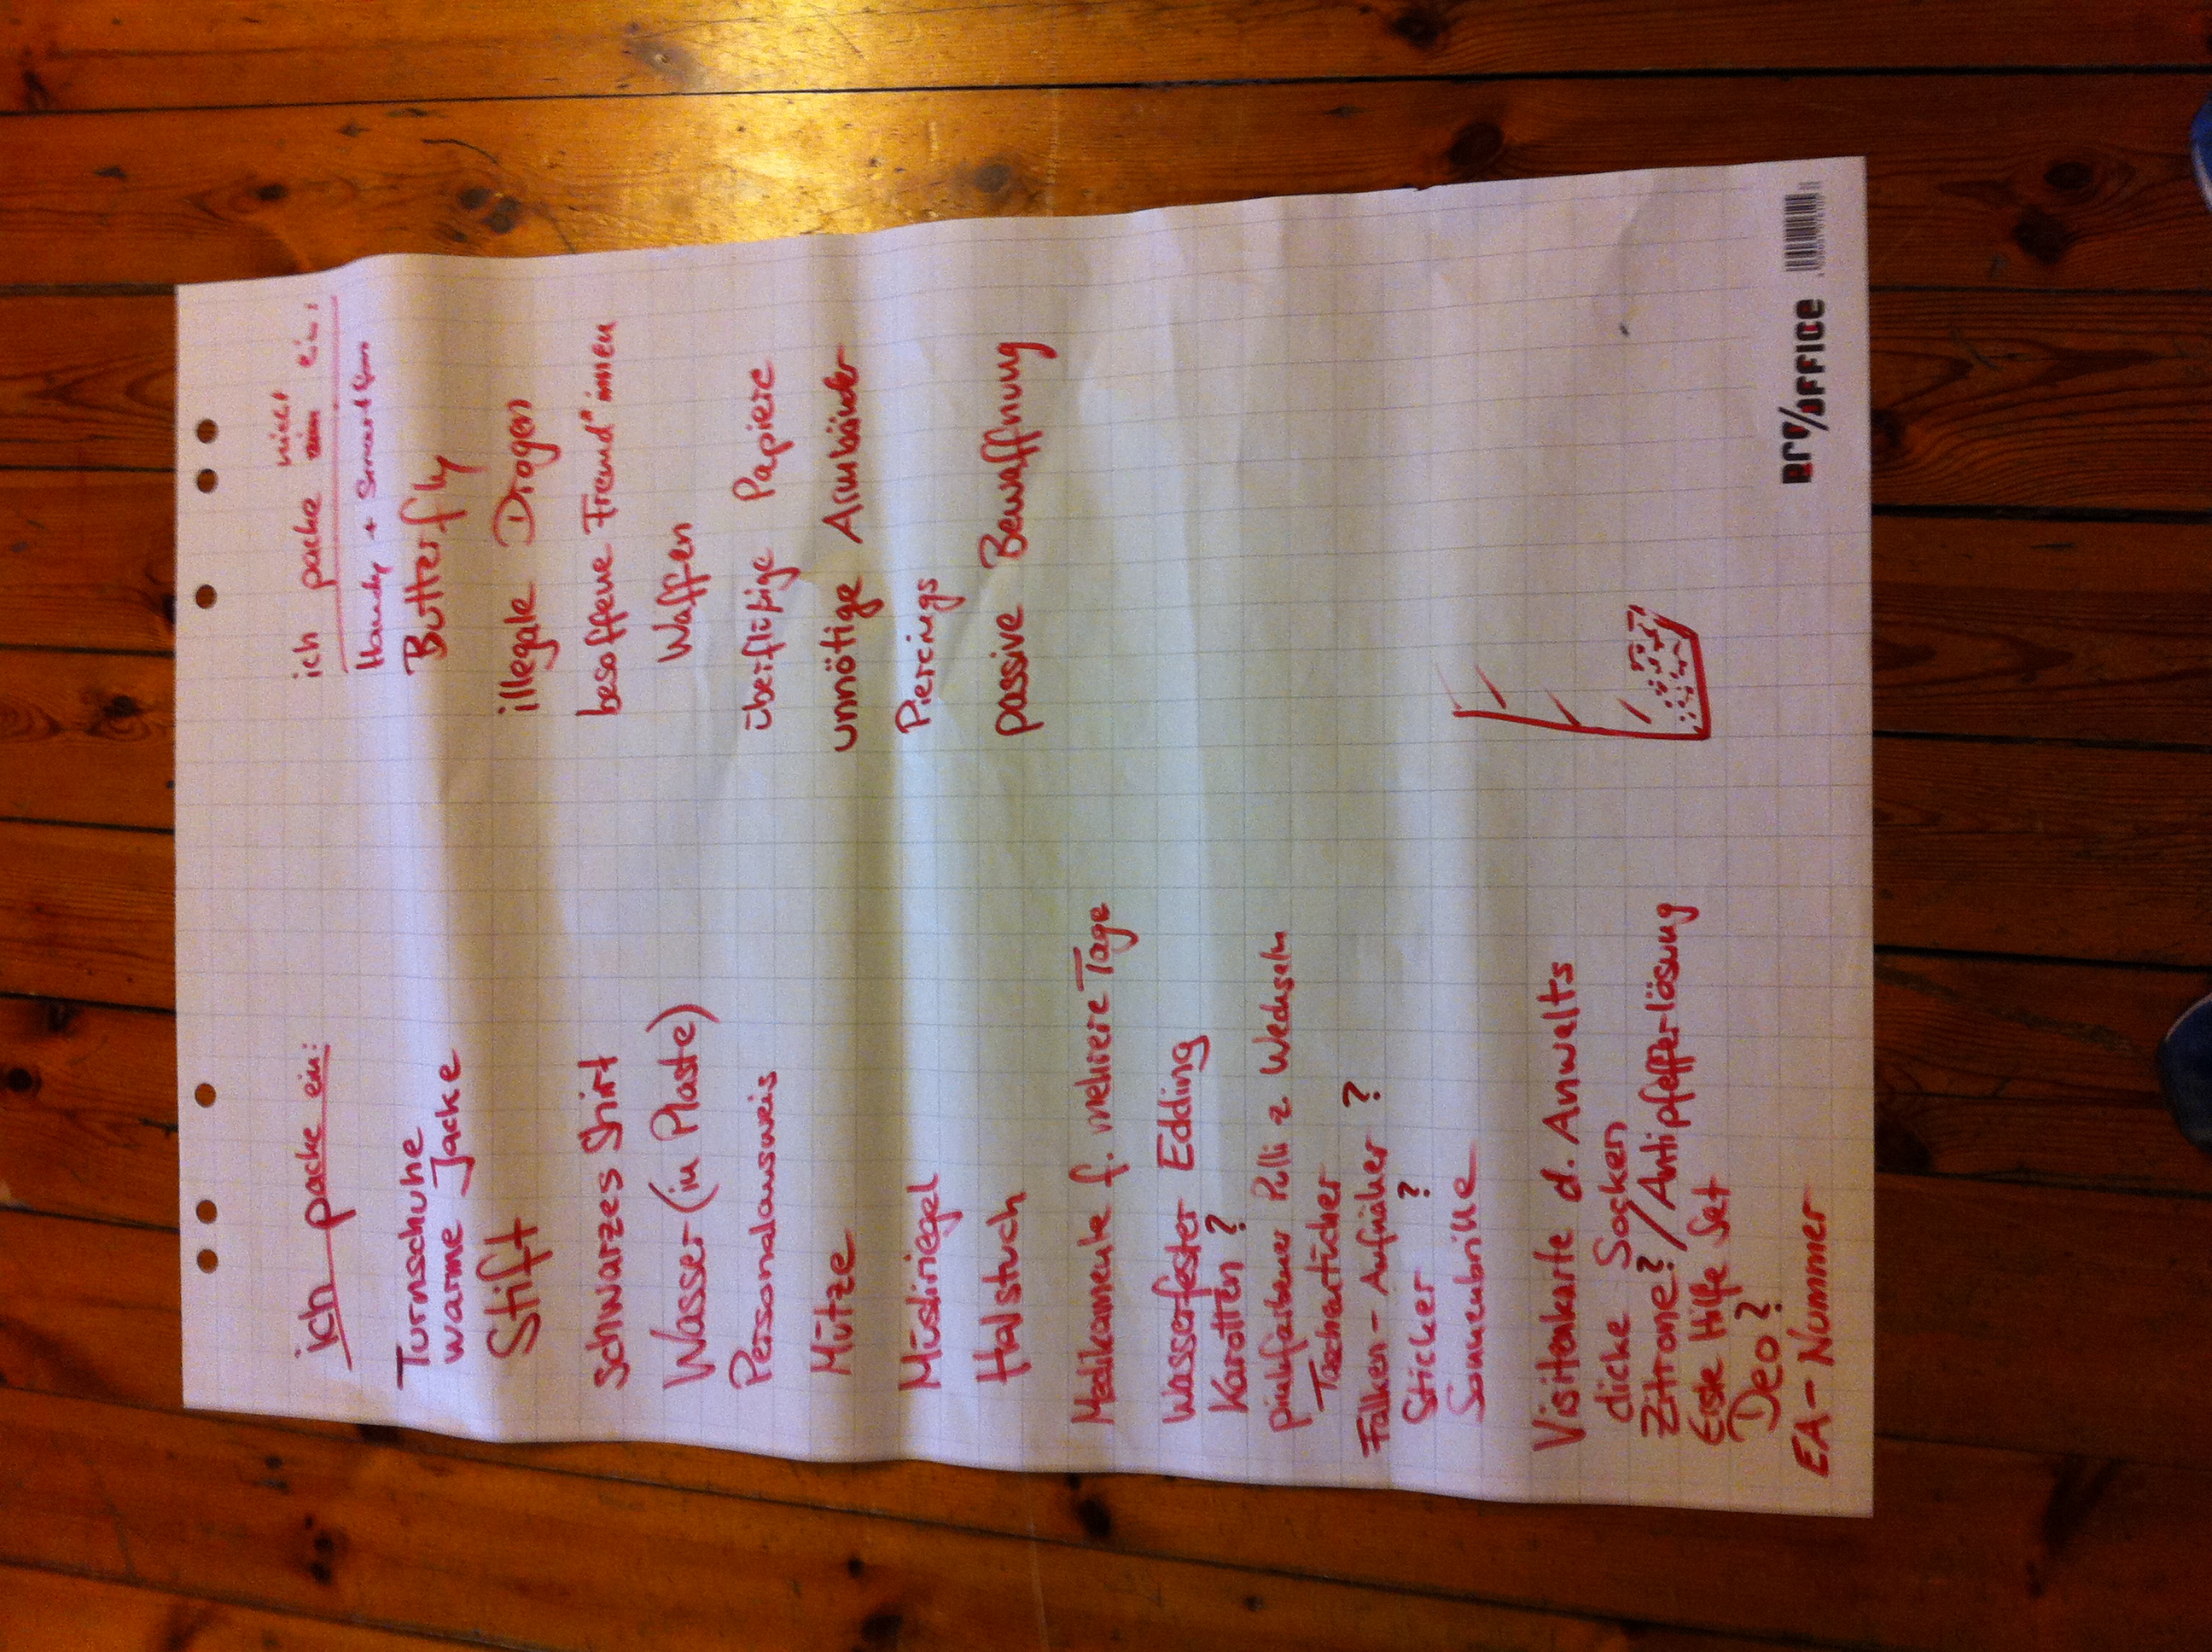 ich packe ein:
Turnschuhe
warme Jacke
Stift
Schwarzes Shirt
Wasser (in Plaste)
Personalausweis
Mütze
Müsliriegel
Halstuch
Medikamente f. mehrere Tage
Wasserfester Edding
Karotten?
pinkfarbener Pulli z Wechseln
Taschentücher
Falken-Aufnäher?
Sticker?
Sonnenbrille
Visitenkarte d. Anwalts
dicke Socken
Zitrone?/Antipfefferlösung
Erste Hilfe Set
Deo?
EA-Nummer
ich packe nicht ein:
Handy + Smartfon
Butterfly
illegale Drogen
besoffene Freund*innen
Waffen
überflüßige Papiere
unnötige Armbänder
Piercings
passive Bewaffnung
PRO/OFFICE